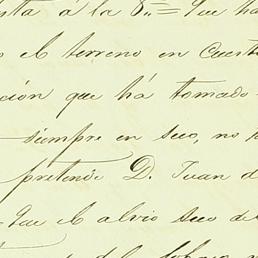 á la 8ª = Que ha
el terreno en cuest
ción que há tomado
siempre en seco, no p
pretende D. Juan d
Que el alvio seco de